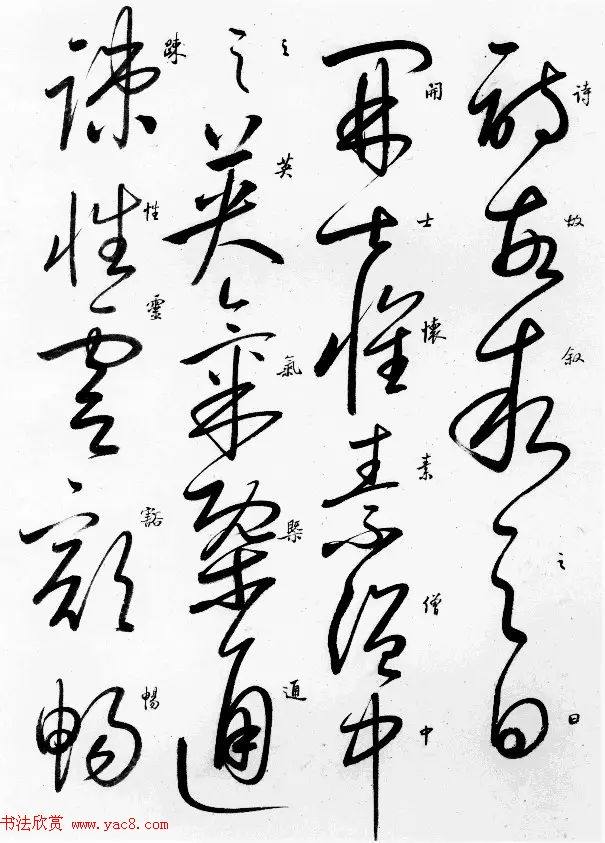 诗故叙之曰
開士懷素僧中
之英氣槩通
踈性靈豁暢
书法欣赏 www.yac8.com